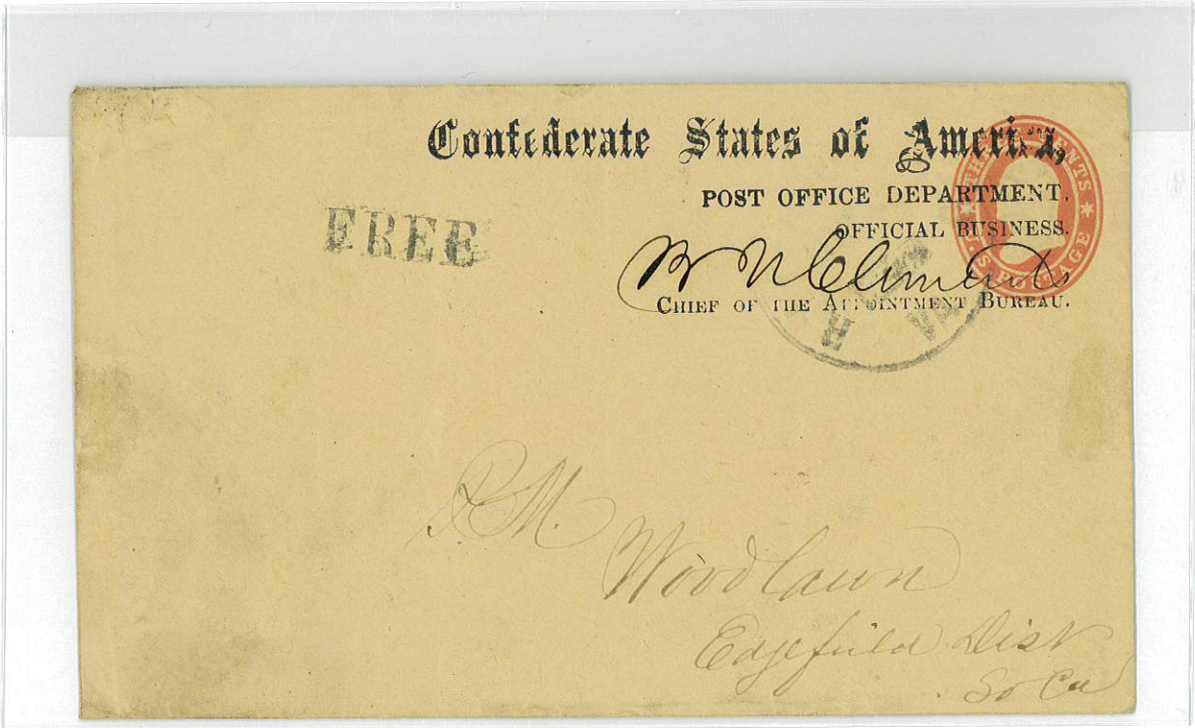 Confederate States of America,
POST OFFICE DEPARTMENT.
OFFICIAL BUSINESS.
B N Clements
CHIEF OF THE APPOINTMENT BUREAU.
THREE CENTS
U.S. POSTAGE
FREE
VA
P.M.
Woodlawn
Edgefield Dist
So Ca